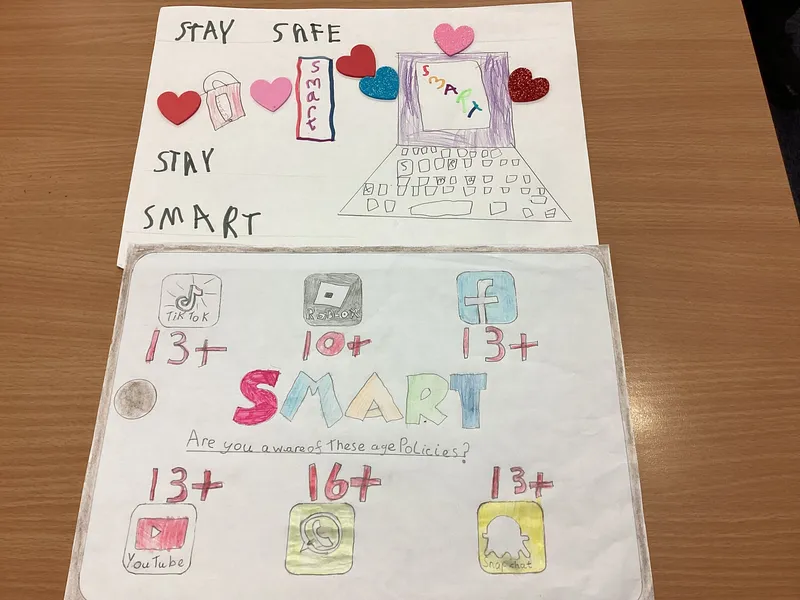 STAY SAFE
smart
SMART
STAY
SMART
S
TikTok
ROBLOX
f
13+
10+
13+
SMART
Are you aware of these age Policies?
13+
16+
13+
YouTube
Snapchat